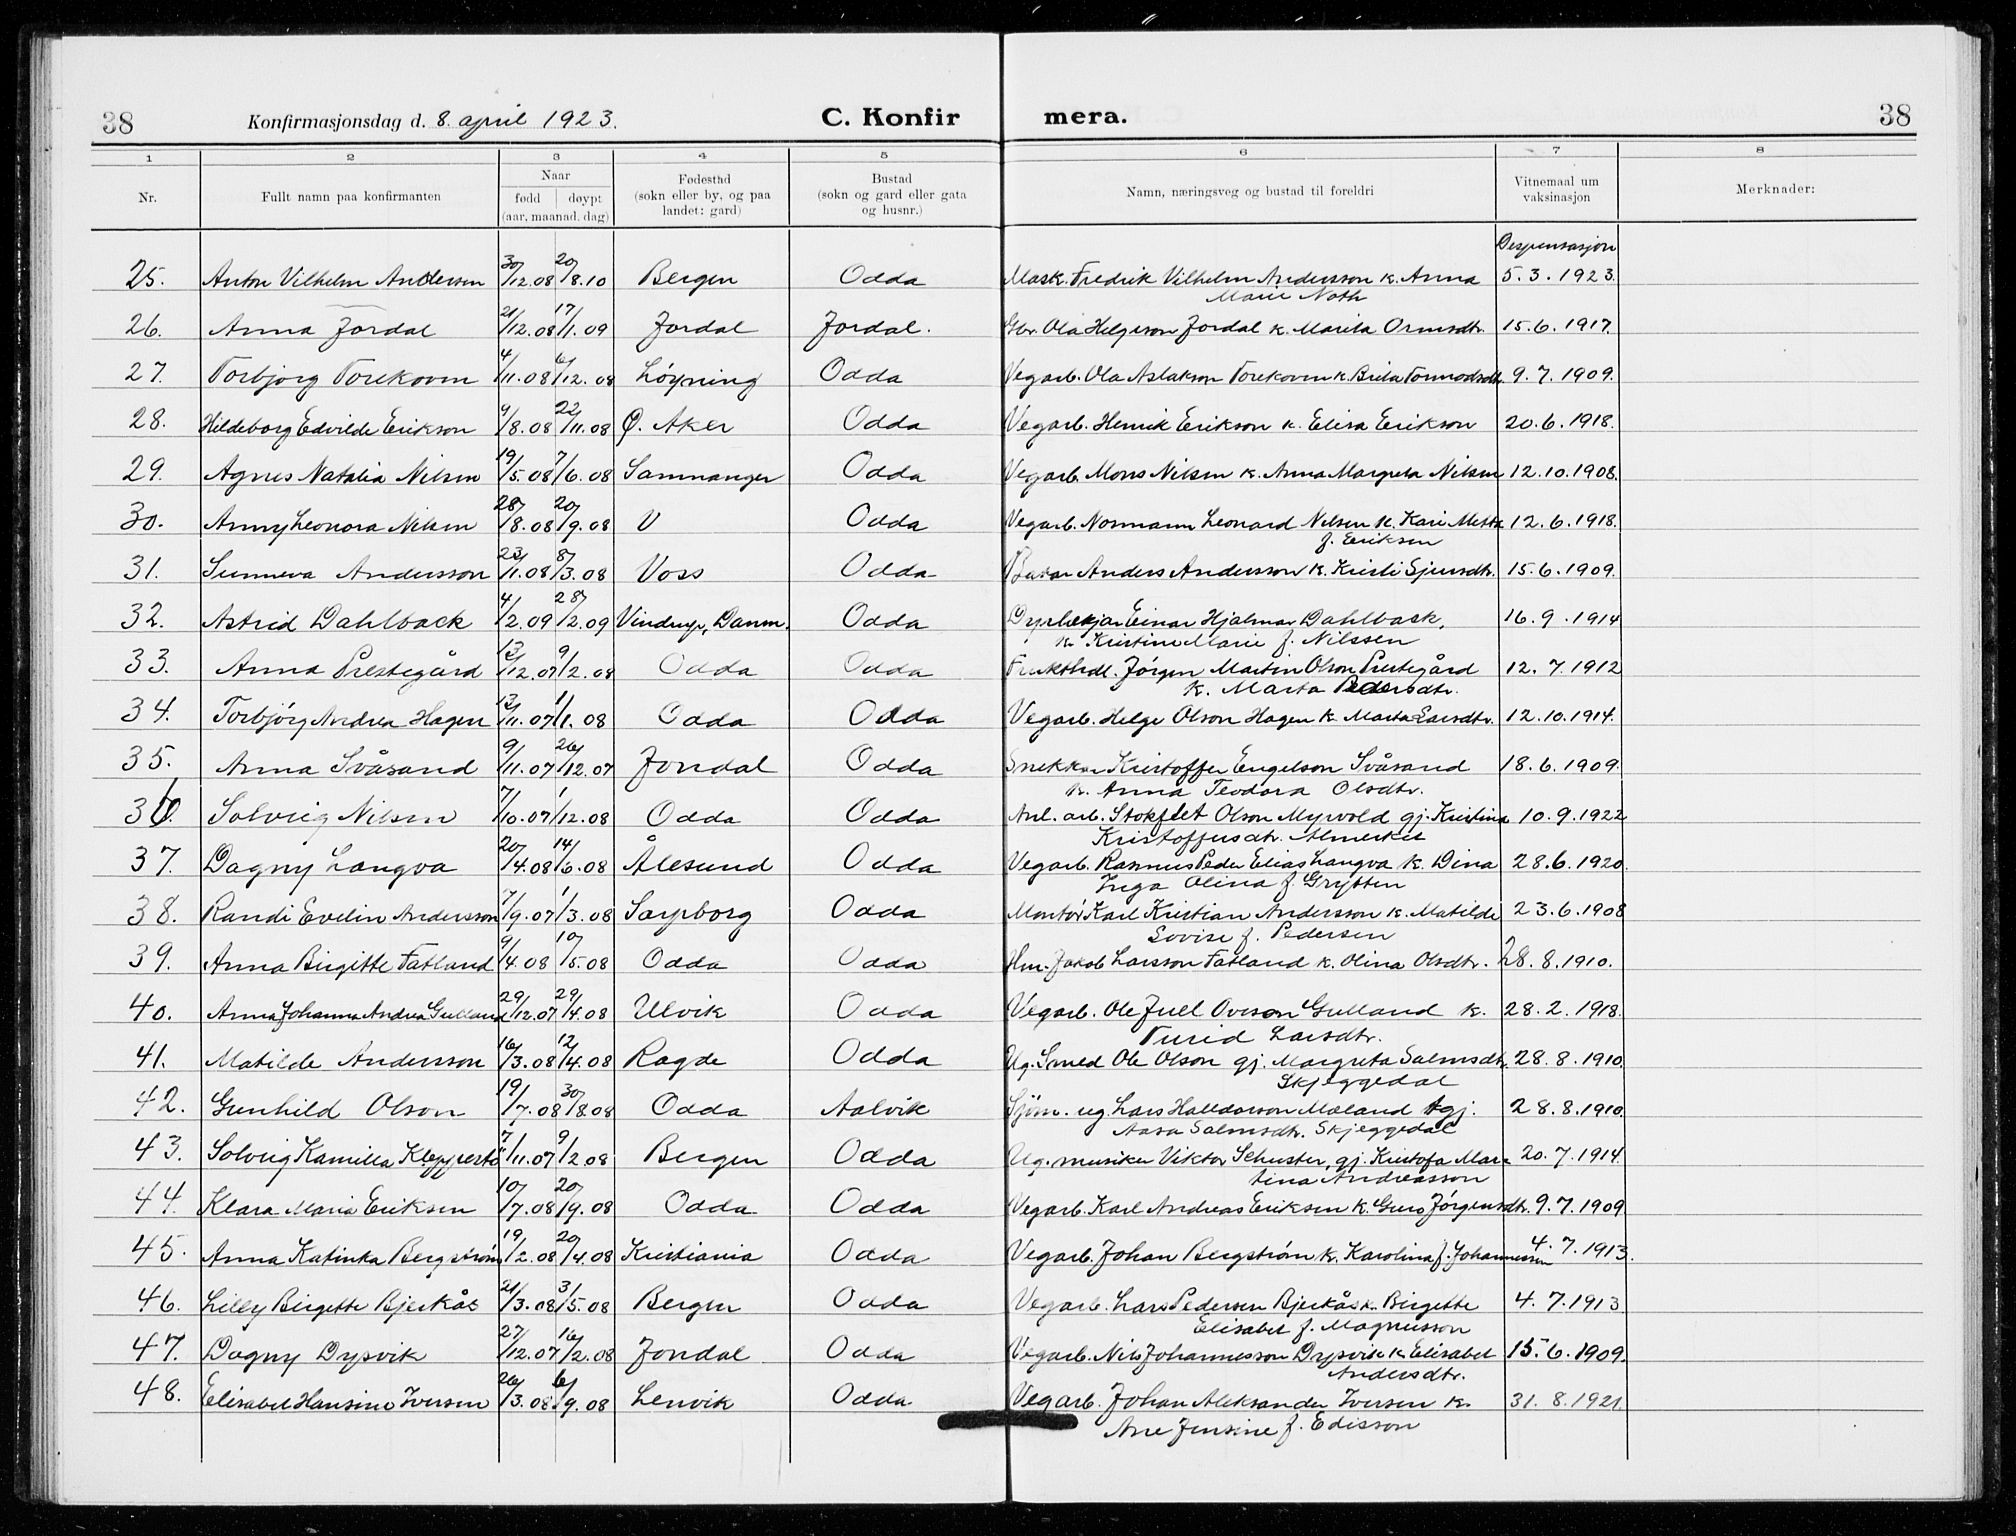 38 Konfirmasjonsdag d. 8. april 1923. C. Konfir mera. 38
1 2 3 4 5 6 7 8
Nr. Fullt namn paa konfirmanten Naar fødd døypt (aar, maanad, dag) Fødestad (sokn eller by, og paa landet: gard) Bustad (sokn og gard eller gata og husnr.) Namn, næringsveg og bustad til foreldri Vitnemaal um vaksinasjon Merknader:
Dispensasjon
25. Anton Vilhelm Andersen 30/12.08 20/8.10 Bergen Odda Mask. Fredrik Vilhelm Andersson k. Anna 5.3.1923.
Marie Noth
26. Anna Jordal 21/12.08 17/1.09 Jordal Jordal. Gbr. Ola Helgeson Jordal k. Marita Ormsdtr. 15.6.1917.
27. Torbjorg Torekoven 4/11.08 6/12.08 Löyning Odda Vegarb. Ola Aslakson Torekoven k. Brita Tormodsdtr. 9.7.1909.
28. Hildeborg Edvilde Erikson 9/8.08 22/11.08 Ø. Aker Odda Vegarb. Henrik Erikson k. Elisa Erikson 20.6.1918.
29. Agnes Natalia Nilsen 19/5.08 7/6.08 Samnanger Odda Vegarb. Mons Nilsen k. Anna Margreta Nilsen 12.10.1908.
30. Anny Leonora Nilsen 28/8.08 20/9.08 V Odda Vegarb. Normann Leonard Nilsen k. Kari Mette 12.6.1918.
f. Eriksen
31. Sunneva Andersson 23/11.08 8/3.08 Voss Odda Anders Andersson k. Kristi Sjursdtr. 15.6.1909.
32. Astrid Dahlback 4/2.09 28/2.09 Vindrup, Danm. Odda Einar Hjalmar Dahlback, 16.9.1914
k. Kristine Marie f. Nilssen
33. Anna Prestegård 13/12.07 9/2.08 Odda Odda Frukthdl. Jörgen Martin Olson Prestegård 12.7.1912
k. Marta Pedersdtr.
34. Torbjörg Andrea Hagen 13/11.07 1/1.08 Odda Odda Vegarb. Helge Olson Hagen k. Marta Larsdtr. 12.10.1914.
35. Anna Svåsand 9/11.07 26/12.07 Jondal Odda Snekker Kristoffer Engelson Svåsand 18.6.1909.
k. Anna Teodora Olsdtr.
36. Solveig Nilsen 7/10.07 1/12.08 Odda Odda Anl. arb. Stokflet Olson Myrvold gj. Kristina 10.9.1922
Kristoffersdtr. Almerket
37. Dagny Langva 20/4.08 14/6.08 Ålesund Odda Vegarb. Rasmus Peder Elias Langva k. Dina 28.6.1920.
Inga Olina f. Grytten
38. Randi Evelin Andersson 7/9.07 1/3.08 Sarpborg Odda Montör Karl Kristian Andersson k. Matilde 23.6.1908
Lovise f. Pedersen
39. Anna Birgitte Fatland 9/4.08 10/5.08 Odda Odda Hm. Jakob Larsson Fatland k. Olina Olsdtr. 28.8.1910.
40. Anna Johanna Andrea Gulland 29/12.07 29/4.08 Ulvik Odda Vegarb. Ole Juel Overson Gulland k. 28.2.1918.
Turid Larsdtr.
41. Matilde Andersson 16/3.08 12/4.08 Ragde Odda Ug. Smed Ole Olson gj. Margreta Salmsdtr. 28.8.1910.
Skjeggedal
42. Gunhild Olson 19/7.08 30/8.08 Odda Aalvik Sjöm. ug. Lars Halldorson Maland gj. 28.8.1910.
Aasa Salmsdtr. Skjeggedal
43. Solveig Kamilla Kleppestö 7/11.07 9/2.08 Bergen Odda Ug. musiker Viktor Schuster, gj. Kristofa Mar= 20.7.1914.
tina Andreasson
44. Klara Maria Eriksen 10/7.08 20/9.08 Odda Odda Vegarb. Karl Andreas Eriksen k. Guro Jörgensdtr. 9.7.1909.
45. Anna Katinka Bergström 19/2.08 20/4.08 Kristiania Odda Vegarb. Johan Bergström k. Karolina f. Johannessen 4.7.1913.
46. Lilly Birgette Bjerkås 21/3.08 31/5.08 Bergen Odda Vegarb. Lars Pedersen Bjerkås k. Birgette 4.7.1913.
Elisabet f. Magnusson
47. Dagny Drysvik 27/12.07 16/2.08 Jondal Odda Vegarb. Nils Johannesson Drysvik k. Elisabet 15.6.1909.
Andersdtr.
48. Elisabet Hansine Iversen 26/3.08 6/9.08 Lenvik Odda Vegarb. Johan Aleksander Iversen k. 31.8.1921.
Ane Jensine f. Edisson